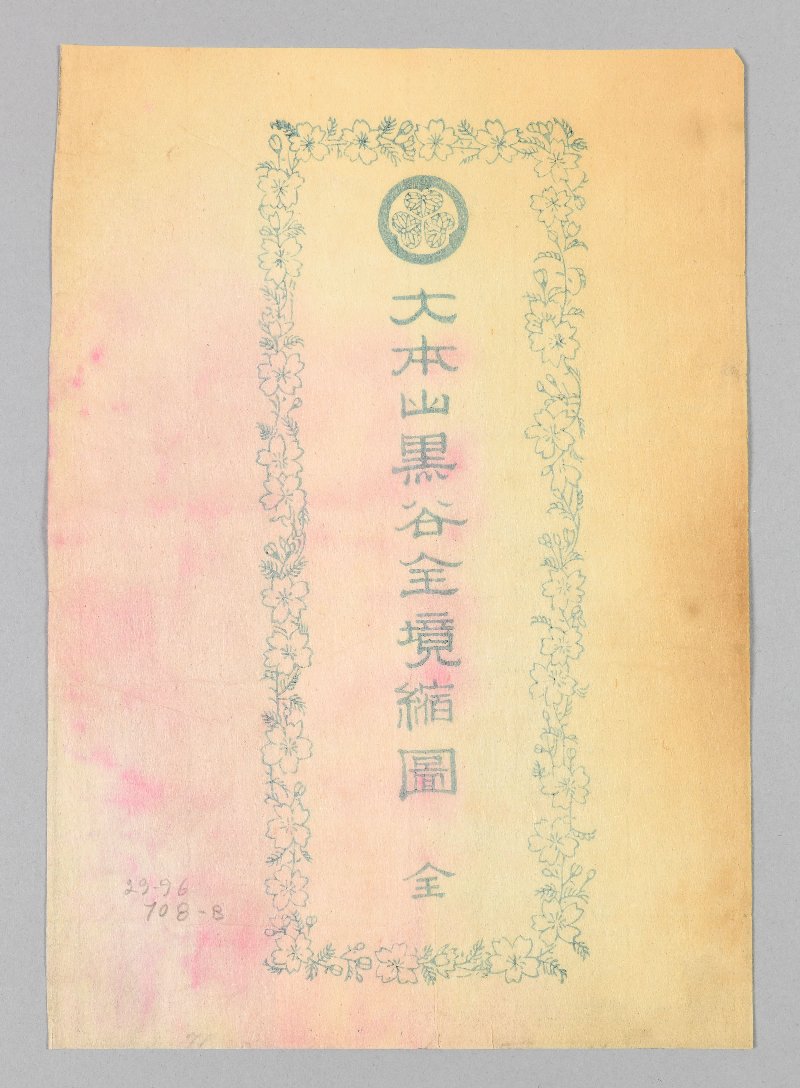 大本山黒谷全境縮圖 全
29-96
708-8